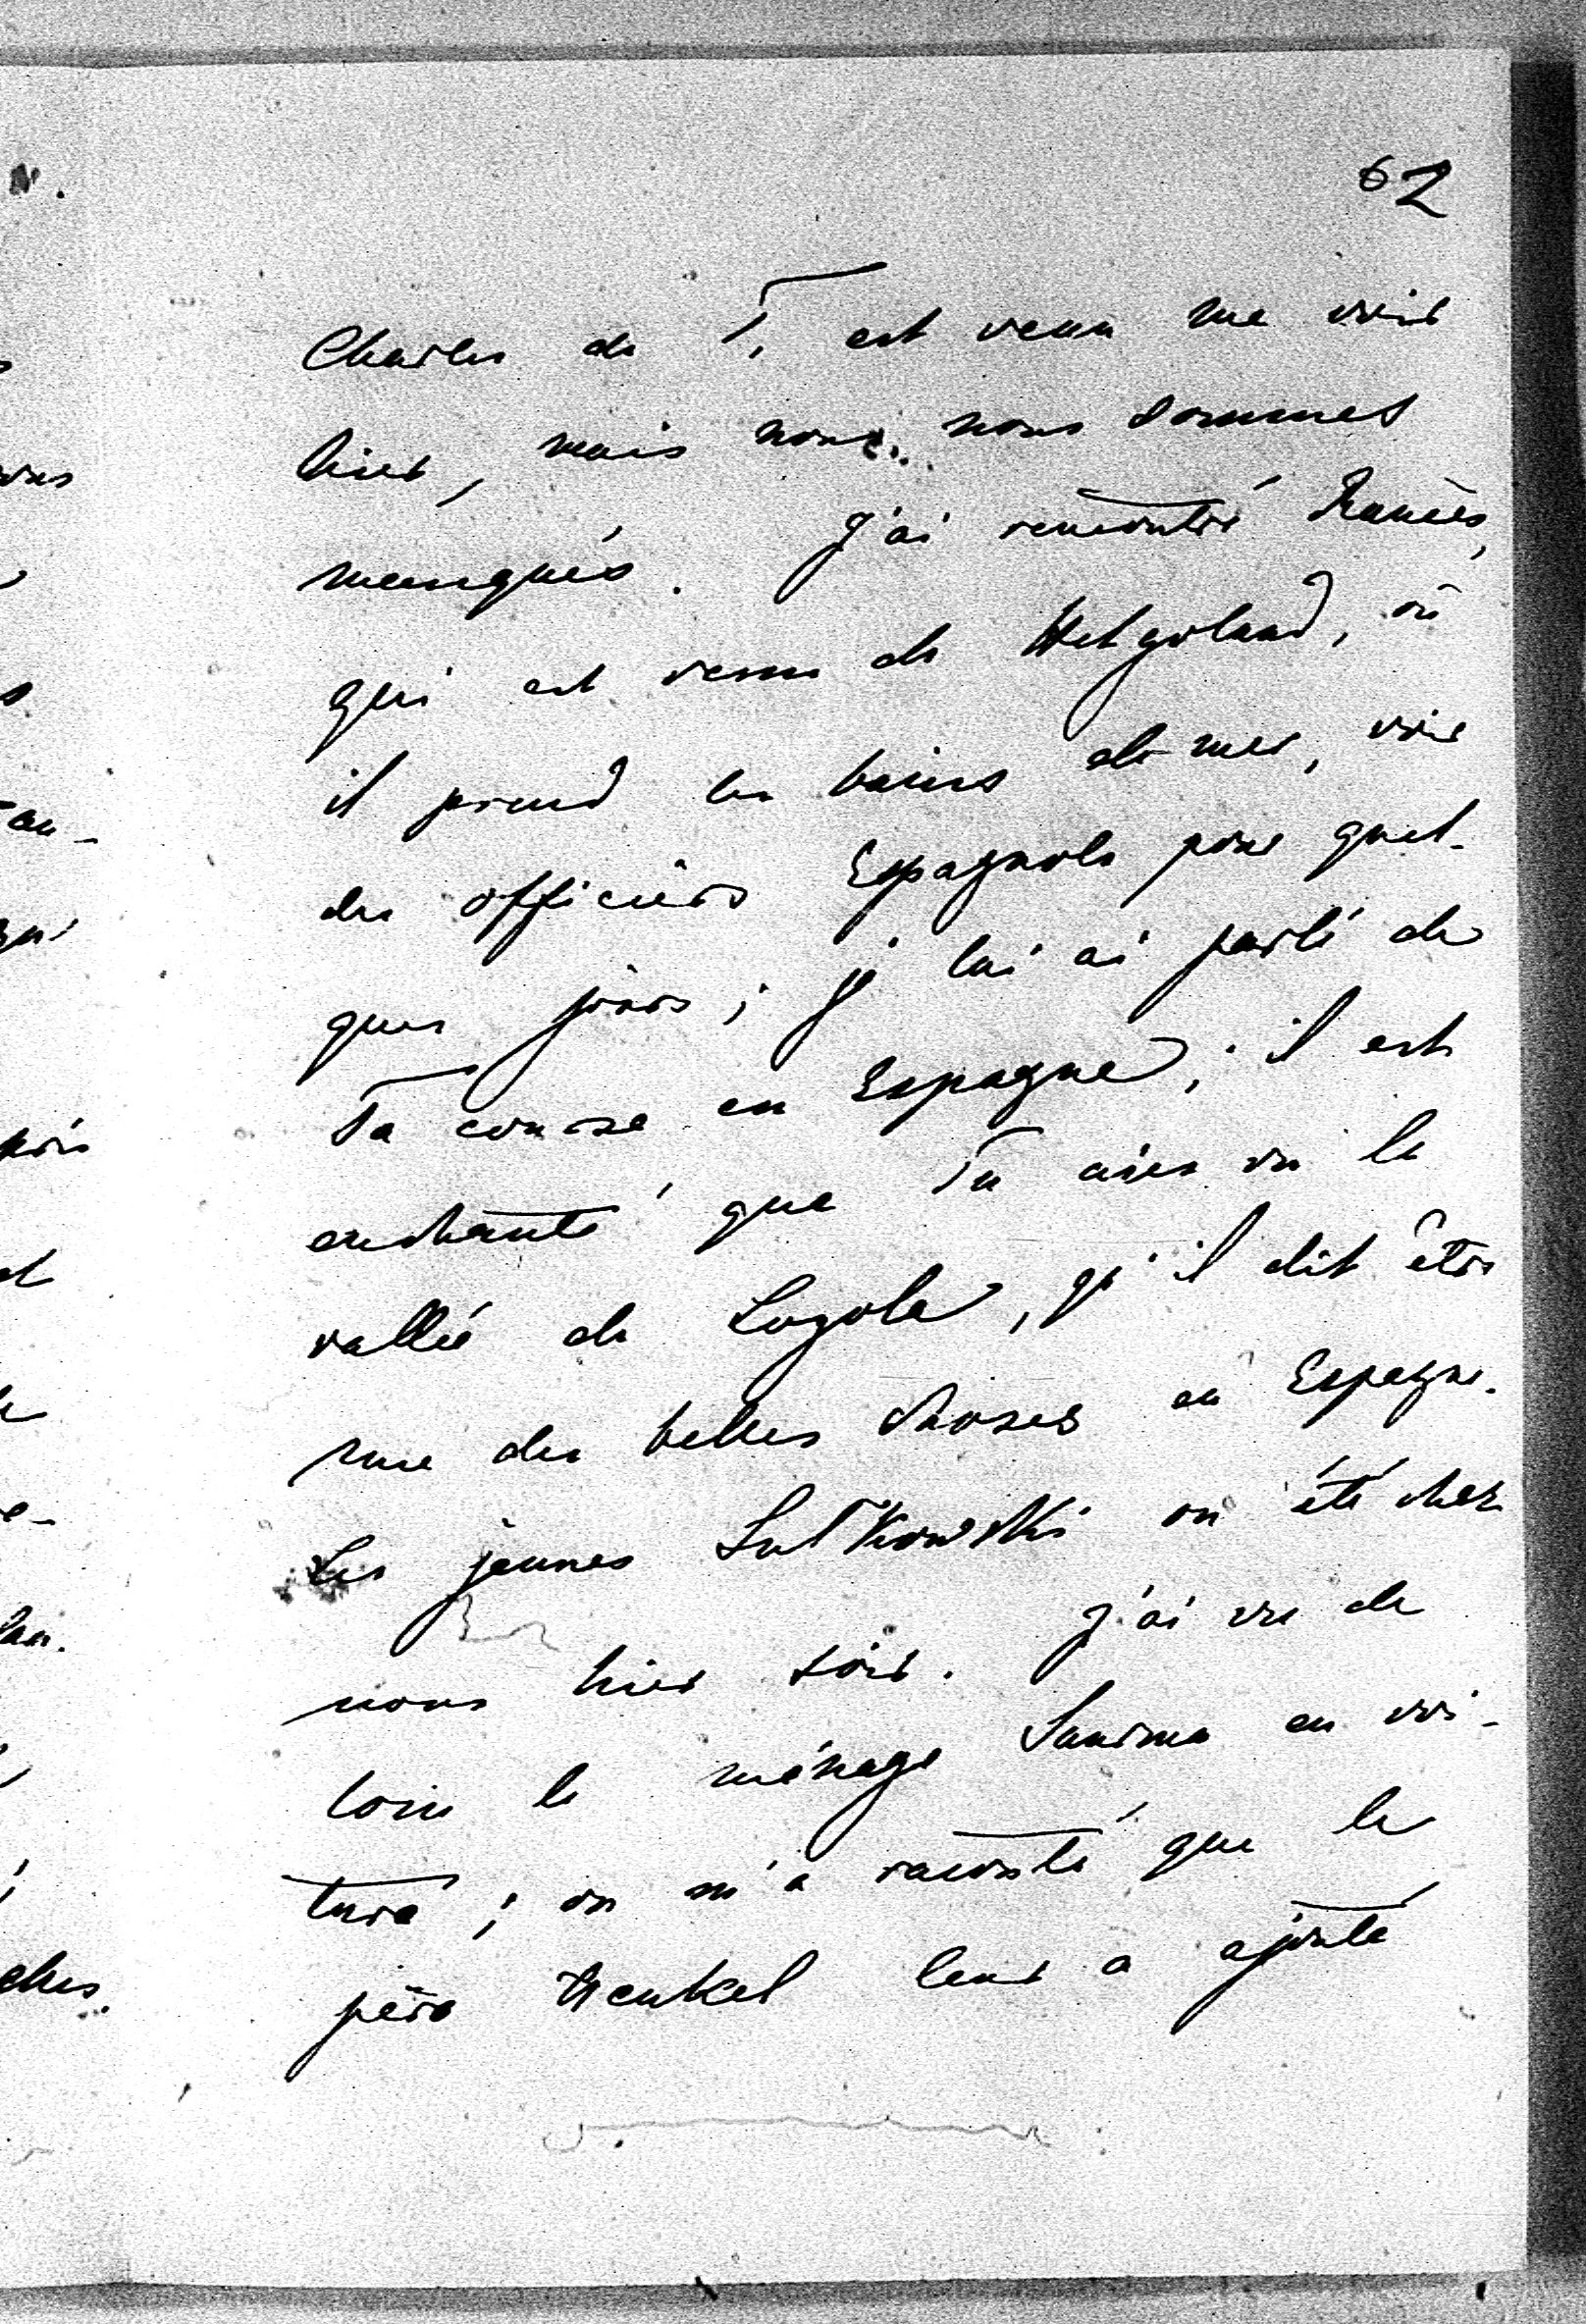 62
Charles de T. est venu me voir
hier, mais nous nous sommes
manqués. J'ai rencontré Rancès,
qui est venu de Helgoland, où
il prend les bains de mer, voir
des officiers Espagnols pour quel-
ques jours; je lui ai parlé de
Ta course en Espagne; il est
enchanté que Tu aies vu la
vallée de Loyola, qu'il dit être
une des belles choses en Espagne.
Les jeunes Sulkowski on été chez
nous hier soir. J'ai vu de
loin le ménage Saurma en voi-
ture; on m'a raconté que le
père Henkel leur a ajouté